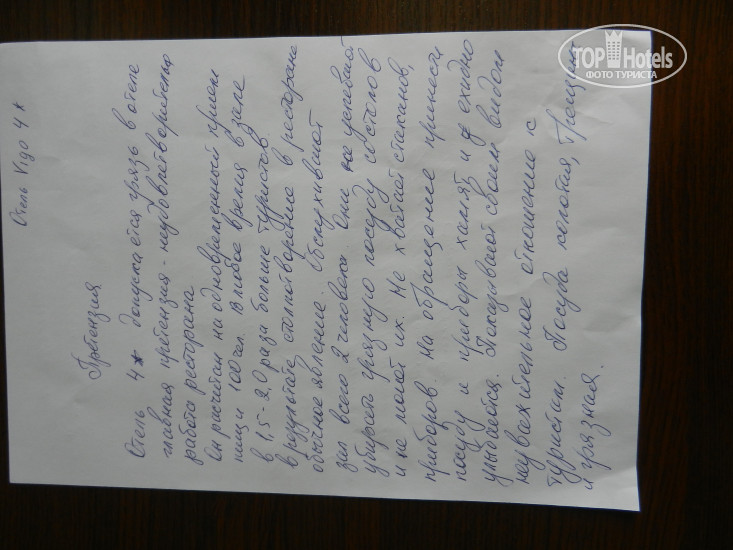 Отель Vigo 4*
Претензия
Отель 4* допускается грязь в отеле
главная претензия - неудовлетворительна
работа ресторана.
Он расчитан на одновременный прием
пищи 100 чел. В любое время в зале
в 1,5-2,0 раза больше туристов
в результате столпотворение в ресторане
обычное явление. Обслуживают
зал всего 2 человека. Они не успевают
убирать грязную посуду со столов
и не моют их. Не хватает стаканов,
приборов. На обращение принести
посуду и приборы хамят и ехидно
улыбаются. Показывают своим видом
неуважительное отношение к
туристам. Посуда колотая, трещины
и грязная.
TOP Hotels
ФОТО ТУРИСТА